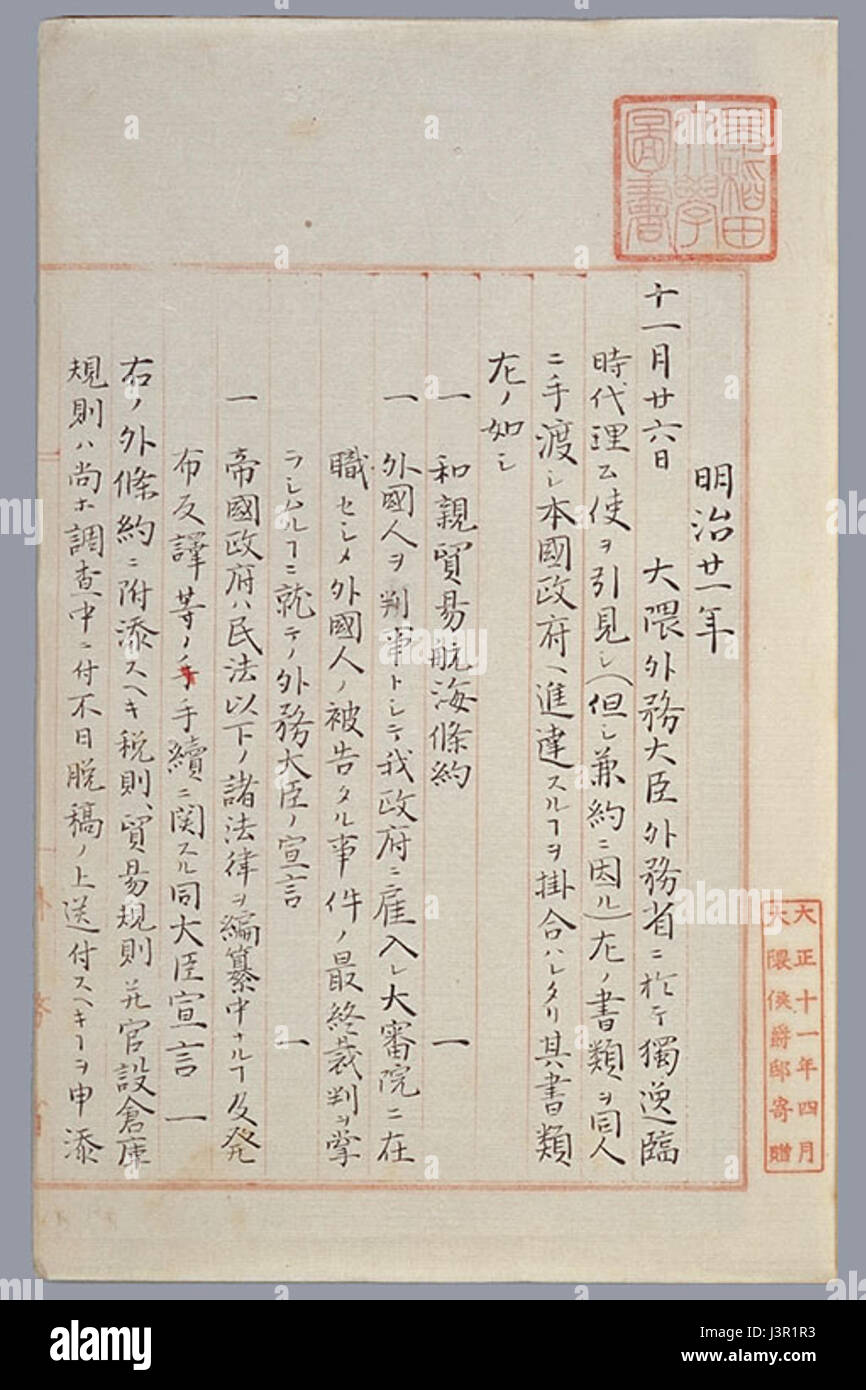 早稲田
大學
圖書
明治廿一年
十一月廿六日 大隈外務大臣外務省ニ於テ獨逸臨
時代理公使ヲ引見シ(但シ兼約ニ因ル)左ノ書類ヲ同人
ニ手渡シ本國政府ヘ進達スルヿヲ掛合ハレタリ其書類
左ノ如シ
一 和親貿易航海條約 一
一 外國人ヲ判事トシテ我政府ニ雇入レ大審院ニ在
職セシメ外國人ノ被告タル事件ノ最終裁判ヲ掌
ラシムルヿニ就テノ外務大臣ノ宣言 一
一 帝國政府ハ民法以下ノ諸法律ヲ編纂中ナルヿ及発
布反譯等ノ手續ニ関スル同大臣宣言 一
右ノ外條約ニ附添スヘキ税則、貿易規則并官設倉庫
規則ハ尚ホ調査中ニ付不日脱稿ノ上送付スヘキヿヲ申添
大正十一年四月
大隈侯爵邸寄贈
alamy
Image ID: J3R1R3
www.alamy.com